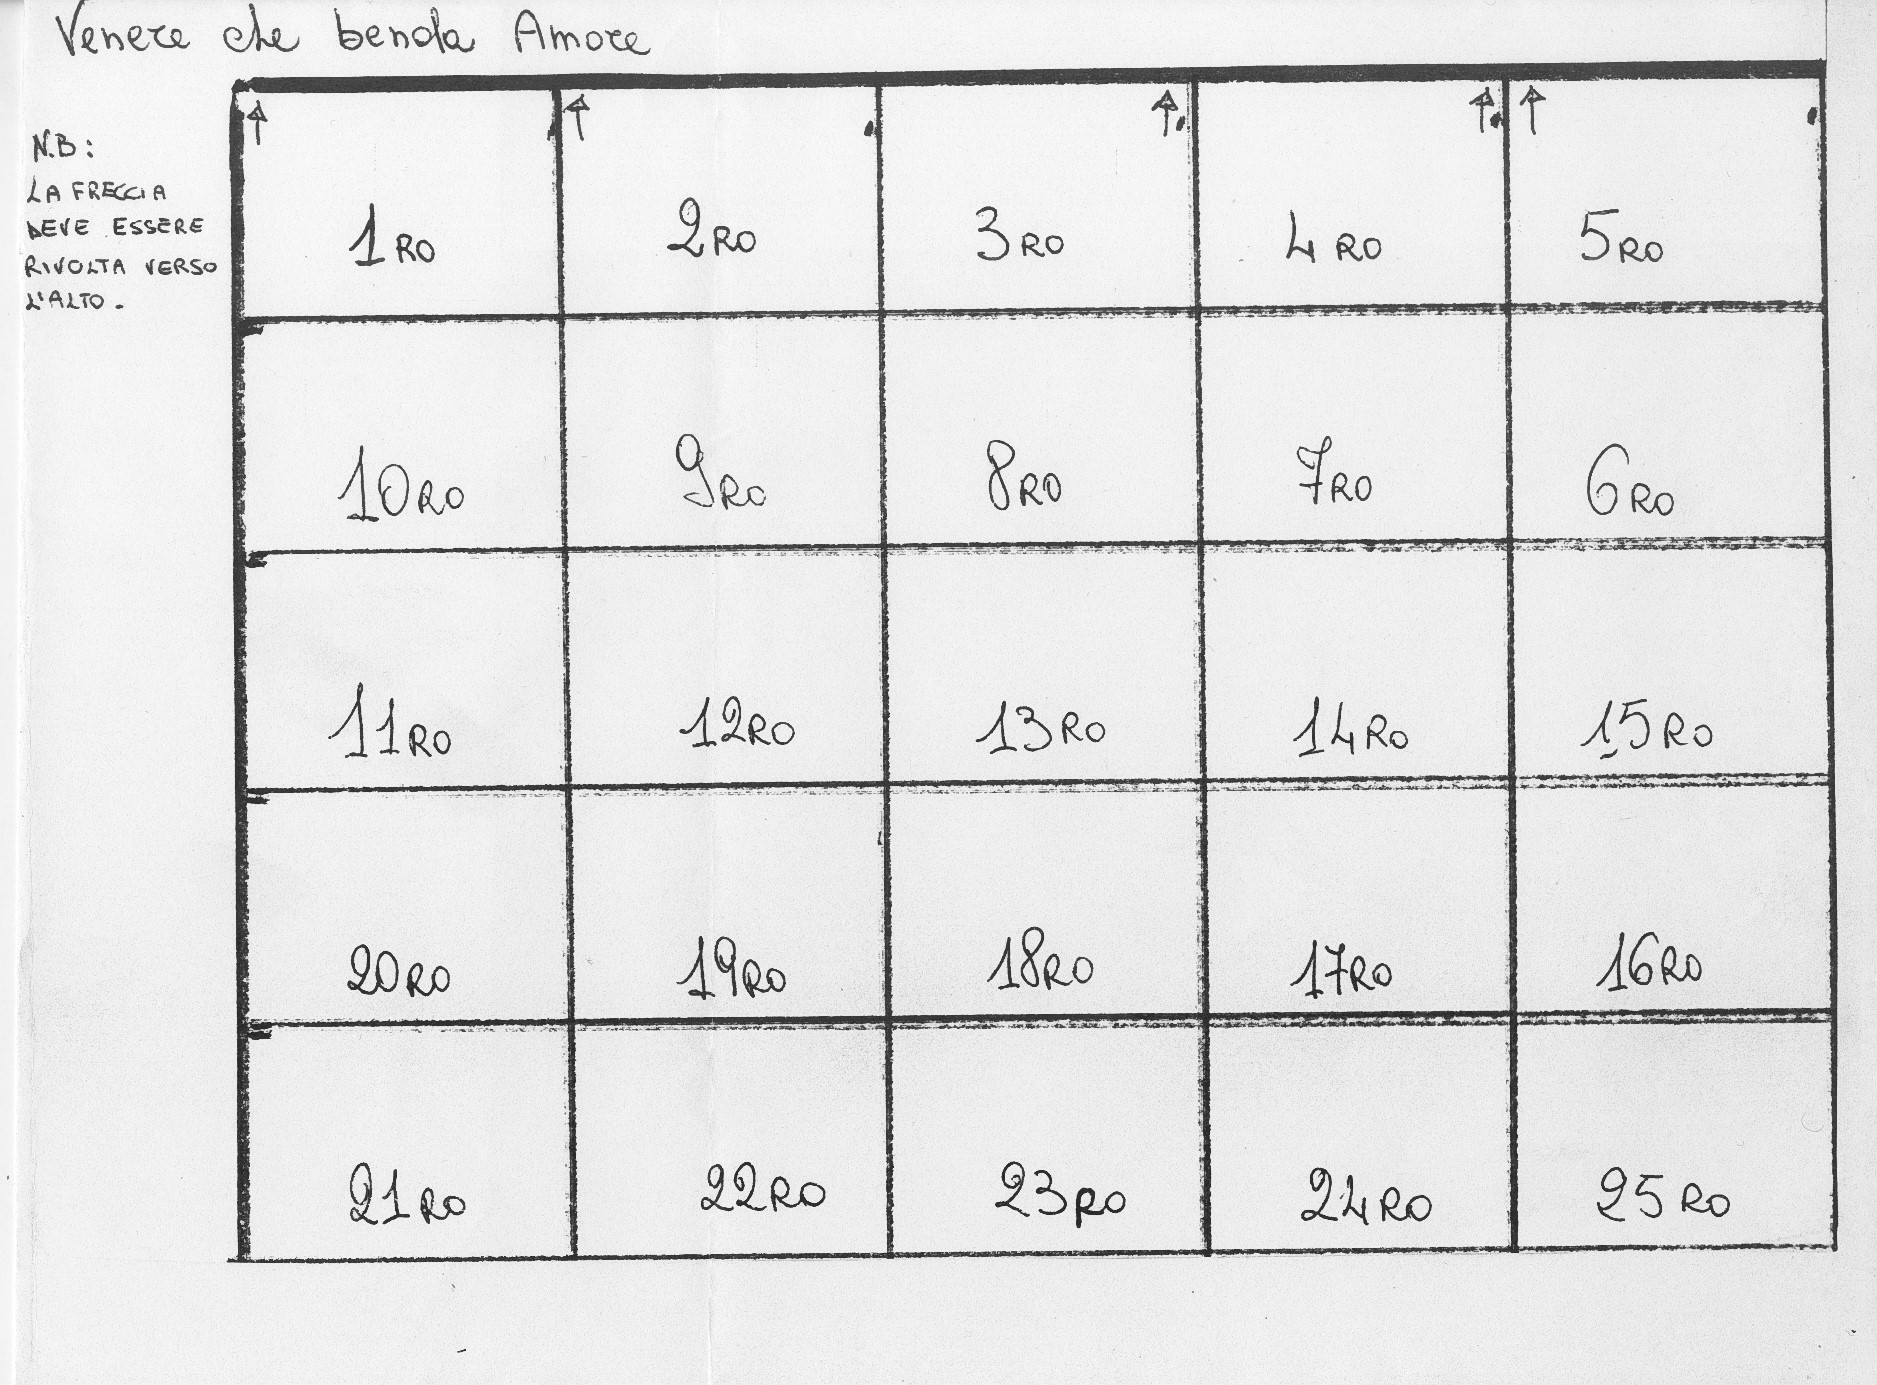 Venere che benda Amore
N.B:
LA FRECCIA
DEVE ESSERE
RIVOLTA VERSO
L'ALTO.
1RO 2RO 3RO 4RO 5RO
10RO 9RO 8RO 7RO 6RO
11RO 12RO 13RO 14RO 15RO
20RO 19RO 18RO 17RO 16RO
21RO 22RO 23RO 24RO 25RO